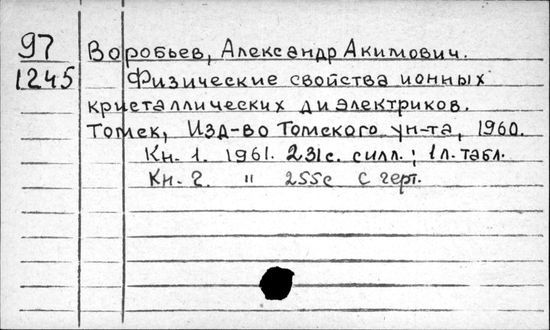 97
1245
Воробьев, Александр Акимович.
Физические свойства ионных
кристаллических диэлектриков.
Томск, Изд-во Томского ун-та, 1960.
Кн. 1. 1961. 231с. с илл.; 1 л. табл.
Кн. 2. " 255с с черт.